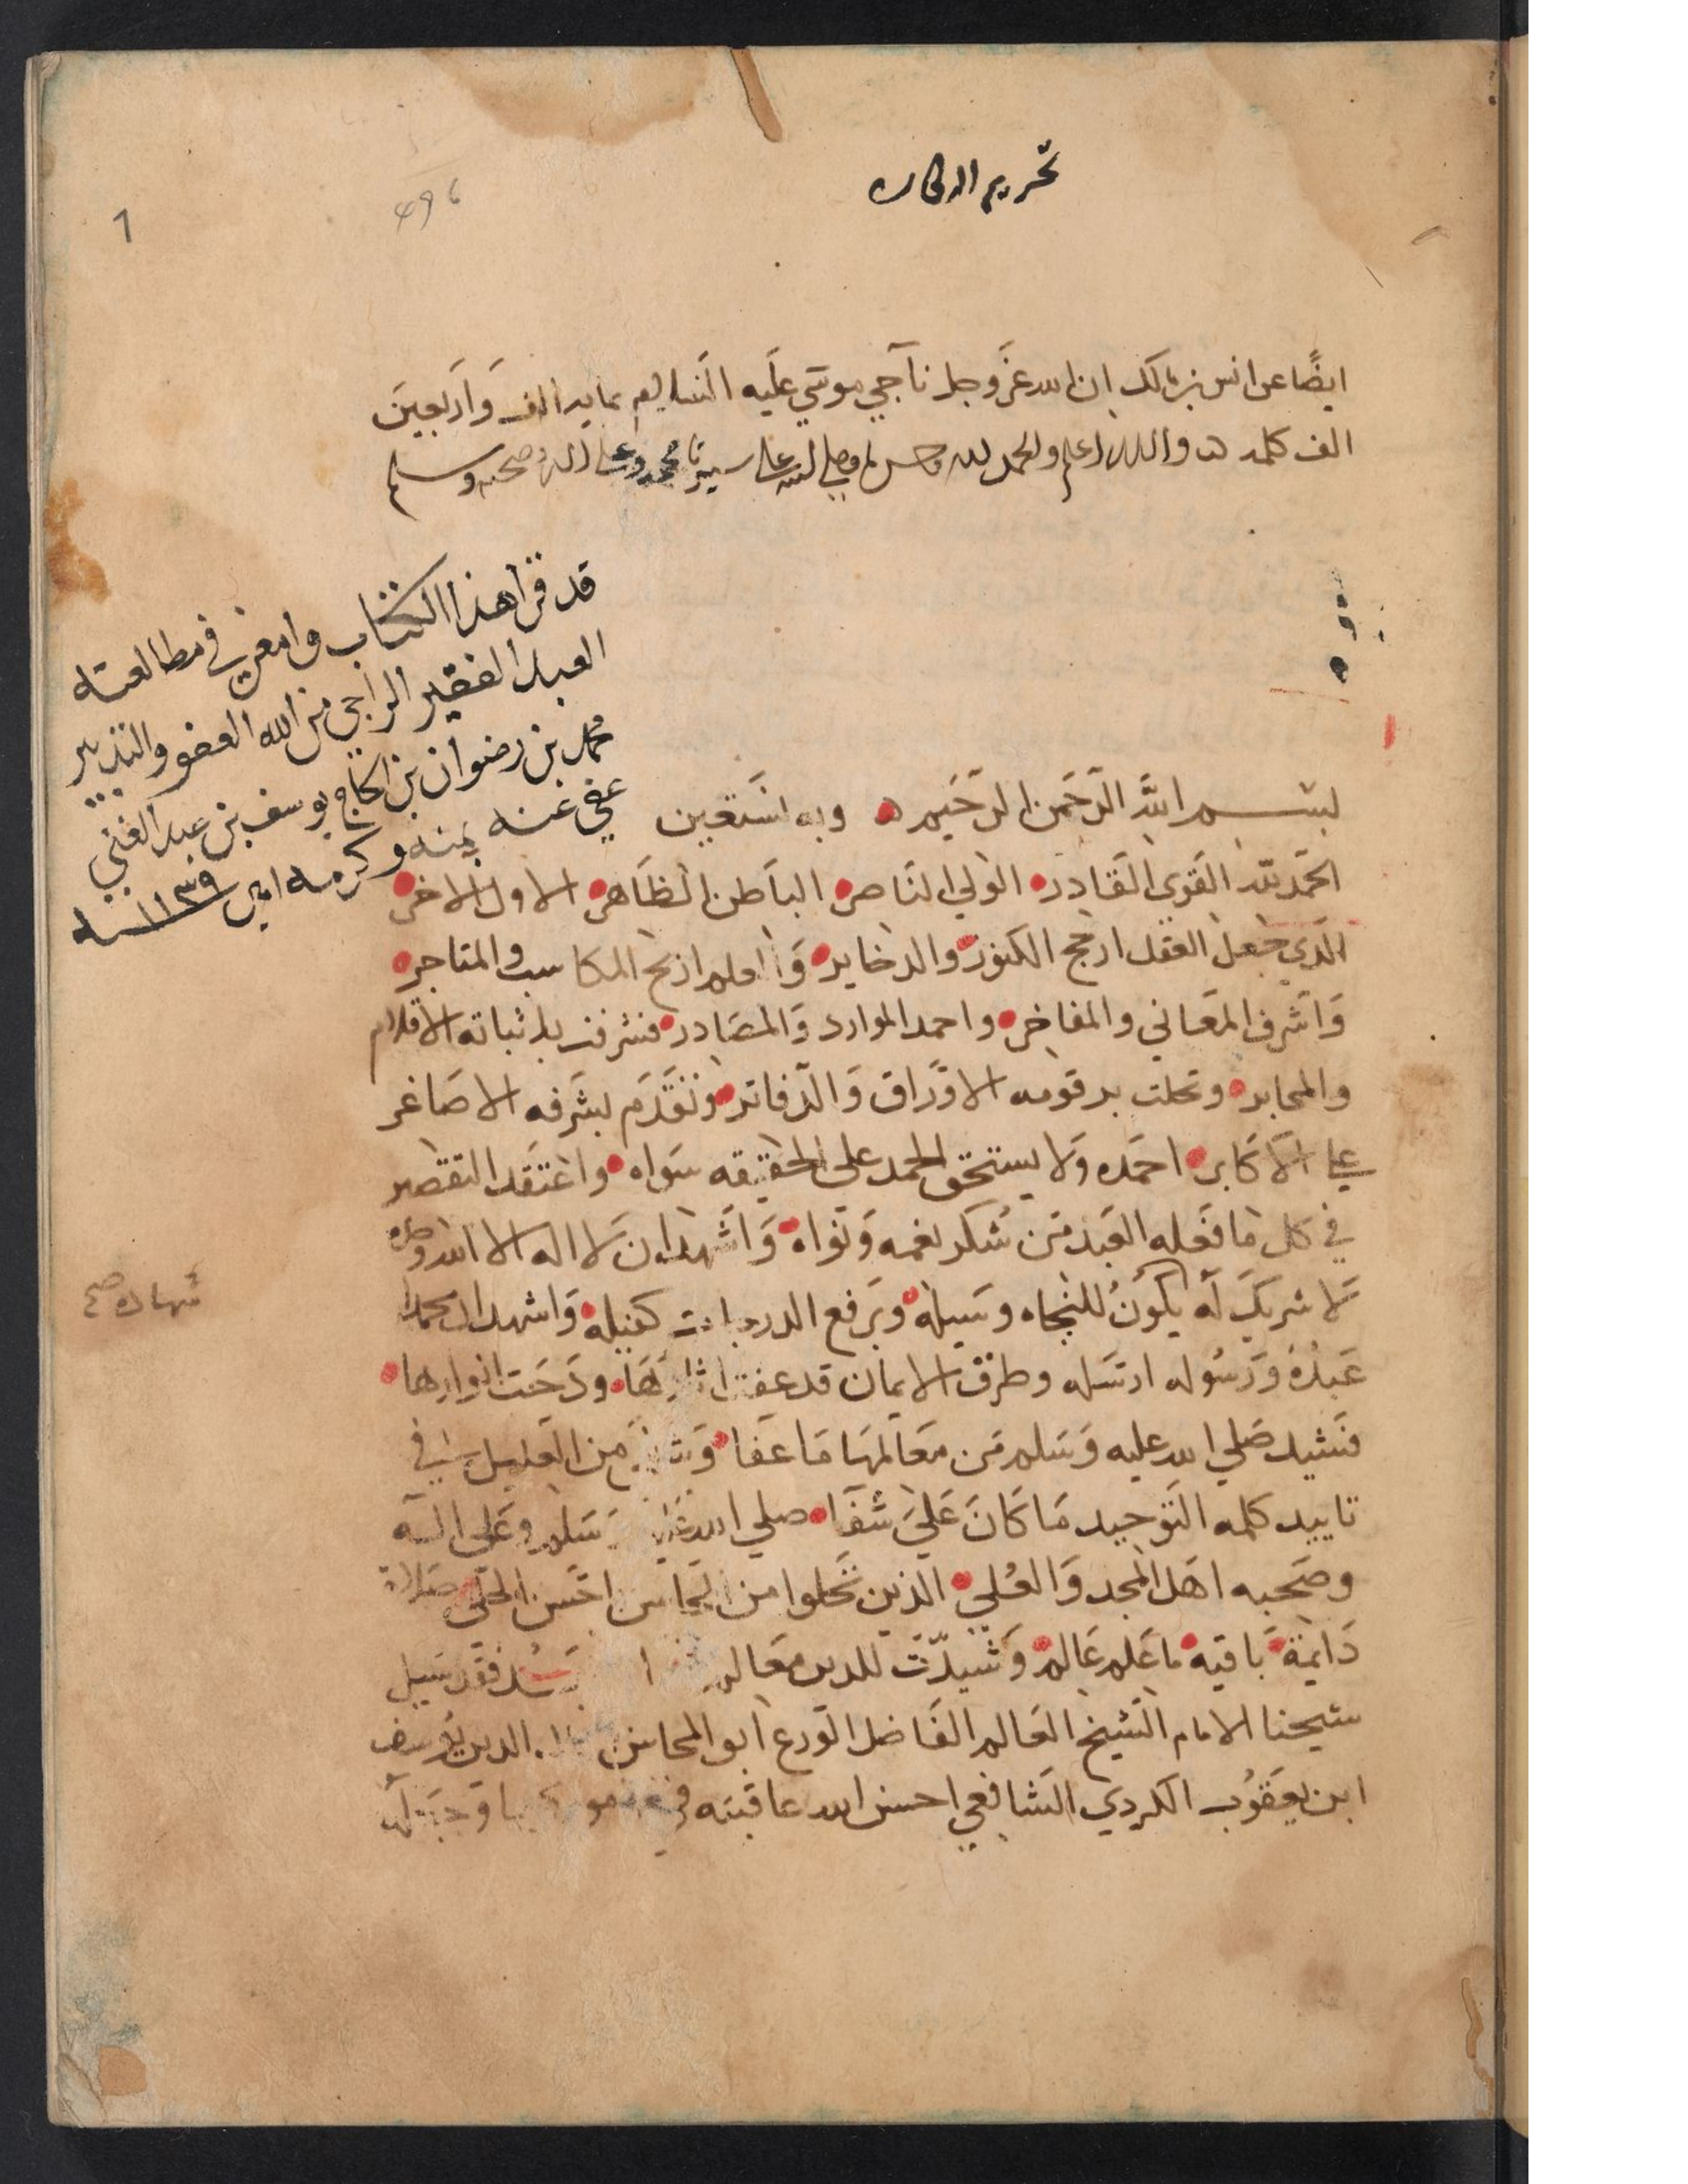 تحريم الدكاره
496
1
ايضًا عن انس بن مالك ان الله عَزَّ وجل ناجي موسَي عَليه السَّلام بمايه الف وَاربعينَ
الف كلمه ه والله اعلم والحمد لله وحده وصلي الله علي سيدنا محمد وعلي اله وصحبه وسلم
قد قرا هذا الكتاب وامعن في مطالعته
العبد الفقير الراجي من الله العفو والتدبير
محمد بن رضوان بن الحاج يوسف بن عبد الغني
عفي عنه بمنه وكرمه امين ١١٣٩ سنه
بســـم الله الرَّحمَن الرَّحَيم ه وبه نَستَعين
الحَمد لله القَوي القَادر الوَلي النَاصر البَاطن الظَاهر الاول الاخر
الذَي جَعل العقل ارجح الكنوز والدخاير وَالعلم اربح المكاسب والمتاجر
وَاشَرف المَعَاني والمفاخر واحمد الموارد وَالمصَادر فشرفت بلاثباته الاقلام
والمحابر وتحلت برقومه الاوَراق وَالدَفاتر وَتقَدَم بشَرفه الاصَاغر
علي الاكابر احمَده وَلا يستحق الحمد علي الحقيقه سَواه واعتَقد التقصير
في كل مَا فعَله العَبد مَن شُكر نعمه وَنواه وَاشَهد ان لَا اله الا الله وحده
لَا شريكَ لَه يكَونُ للنجاه وسَيله وبَرفع الدرجات كفيله وَاشهد ان محمدا
شهاده صح
عَبدُهُ وَرسُوله ارسَله وطرق الايمان قد عفت اثارهَا ودَحَت انوارها
فشيد صَلي الله عليه وَسَلم مَن معَالمهَا مَا عَفا من العليل في
تاييد كلمه التَوحيد مَا كَانَ عَليَ شَفَا صلي الله عليه وَسَلم وعَلي اله
وصَحبه اهَل المجد وَالعُلي الذين تَحلوا من المحاسن احَسن الحلَي صَلاة
دَايمَة بَاقيَة مَا عَلم عَالم وَشَيدّت للدين معَالم فقد سَيل
شيخنا الامام الشَيخ العَالم الفَاضل الوَرع ابو المحاسن الدين يوُسف
ابن يعَقوُب الكردي الشَافعي احسَن الله عَاقبتَه في